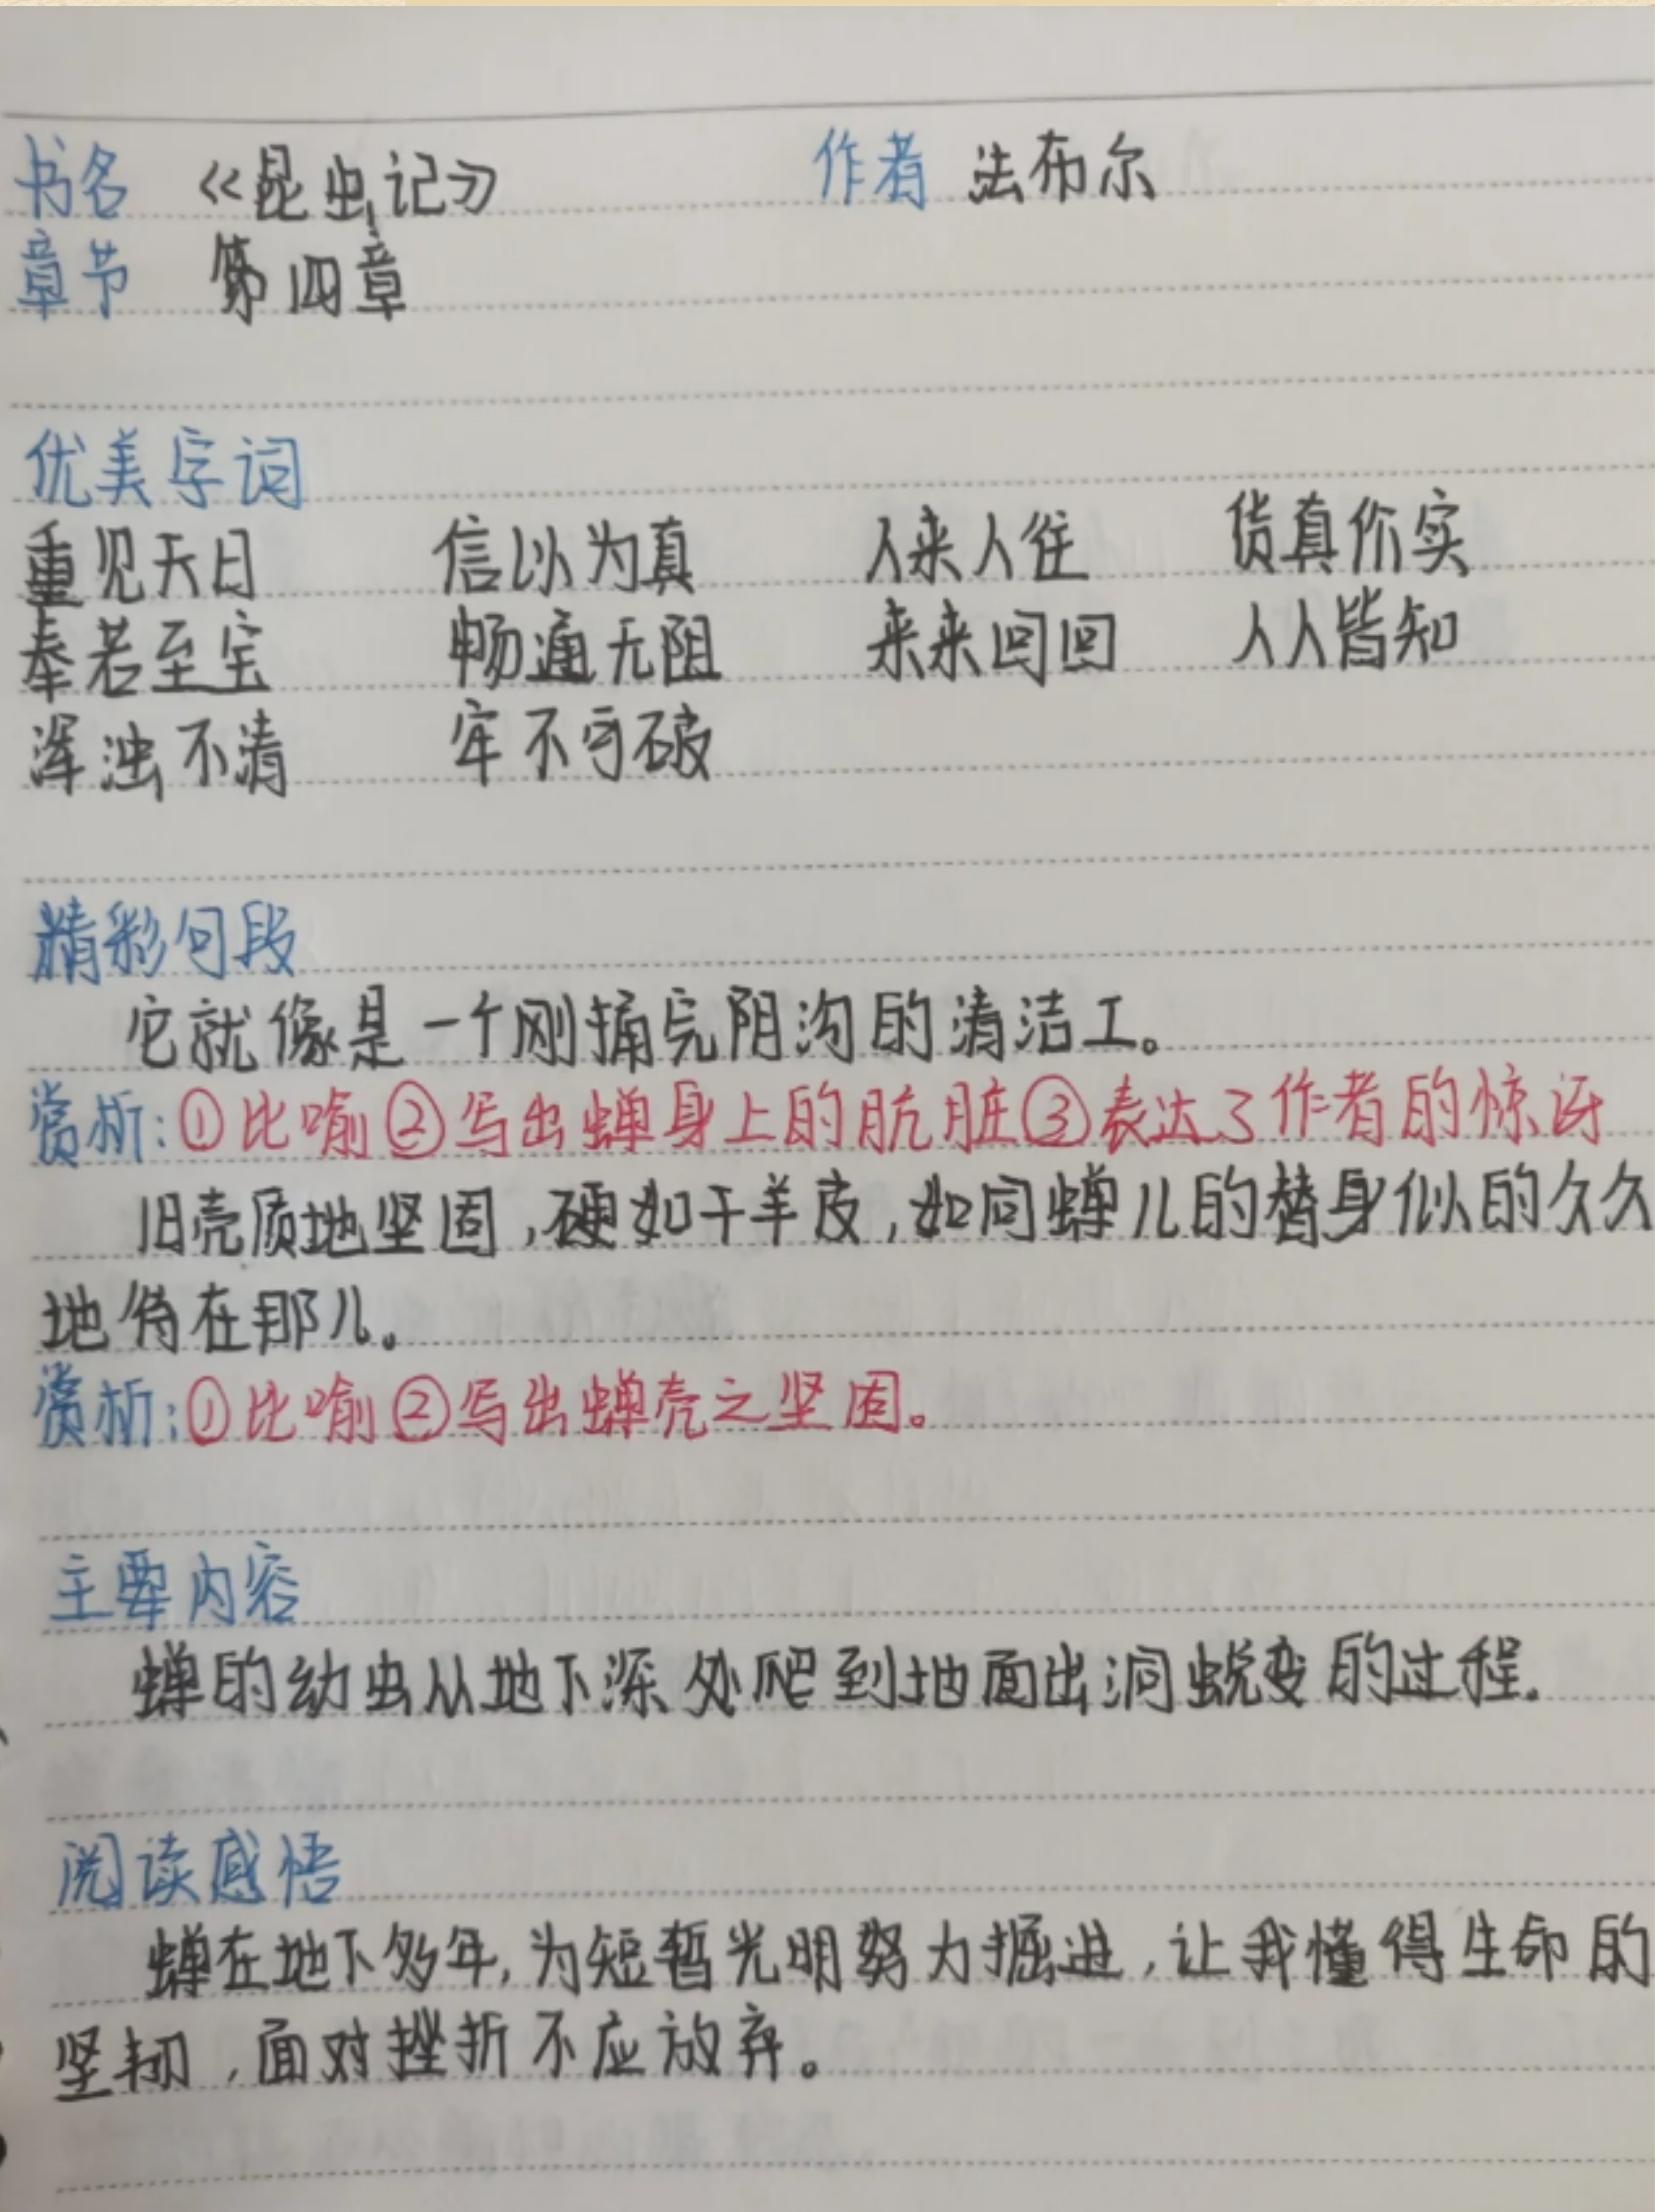 书名 《昆虫记》 作者 法布尔
章节 第四章
优美字词
重见天日 信以为真 人来人往 货真价实
奉若至宝 畅通无阻 来来回回 人人皆知
浑浊不清 牢不可破
精彩句段
它就像是一个刚捅完阴沟的清洁工。
赏析:①比喻②写出蝉身上的肮脏③表达了作者的惊讶
旧壳质地坚固,硬如干羊皮,如同蝉儿的替身似的久久
地待在那儿。
赏析:①比喻②写出蝉壳之坚固。
主要内容
蝉的幼虫从地下深处爬到地面出洞蜕变的过程。
阅读感悟
蝉在地下多年,为短暂光明努力掘进,让我懂得生命的
坚韧,面对挫折不应放弃。